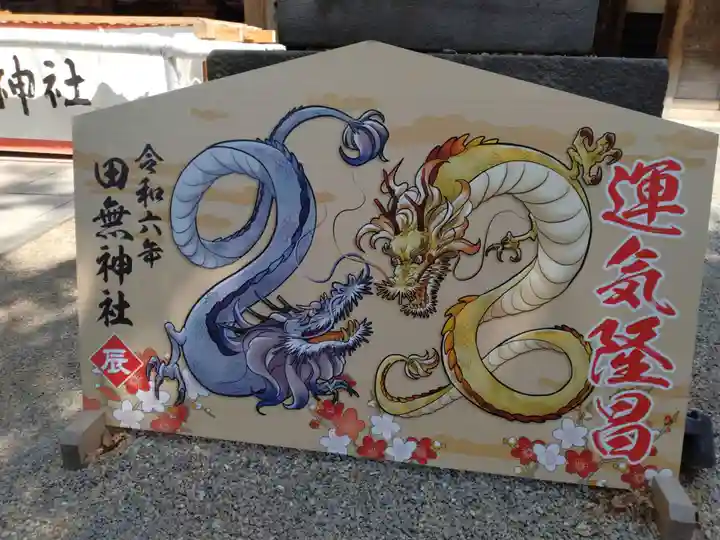 神社
令和六年
田無神社
辰
運気隆昌